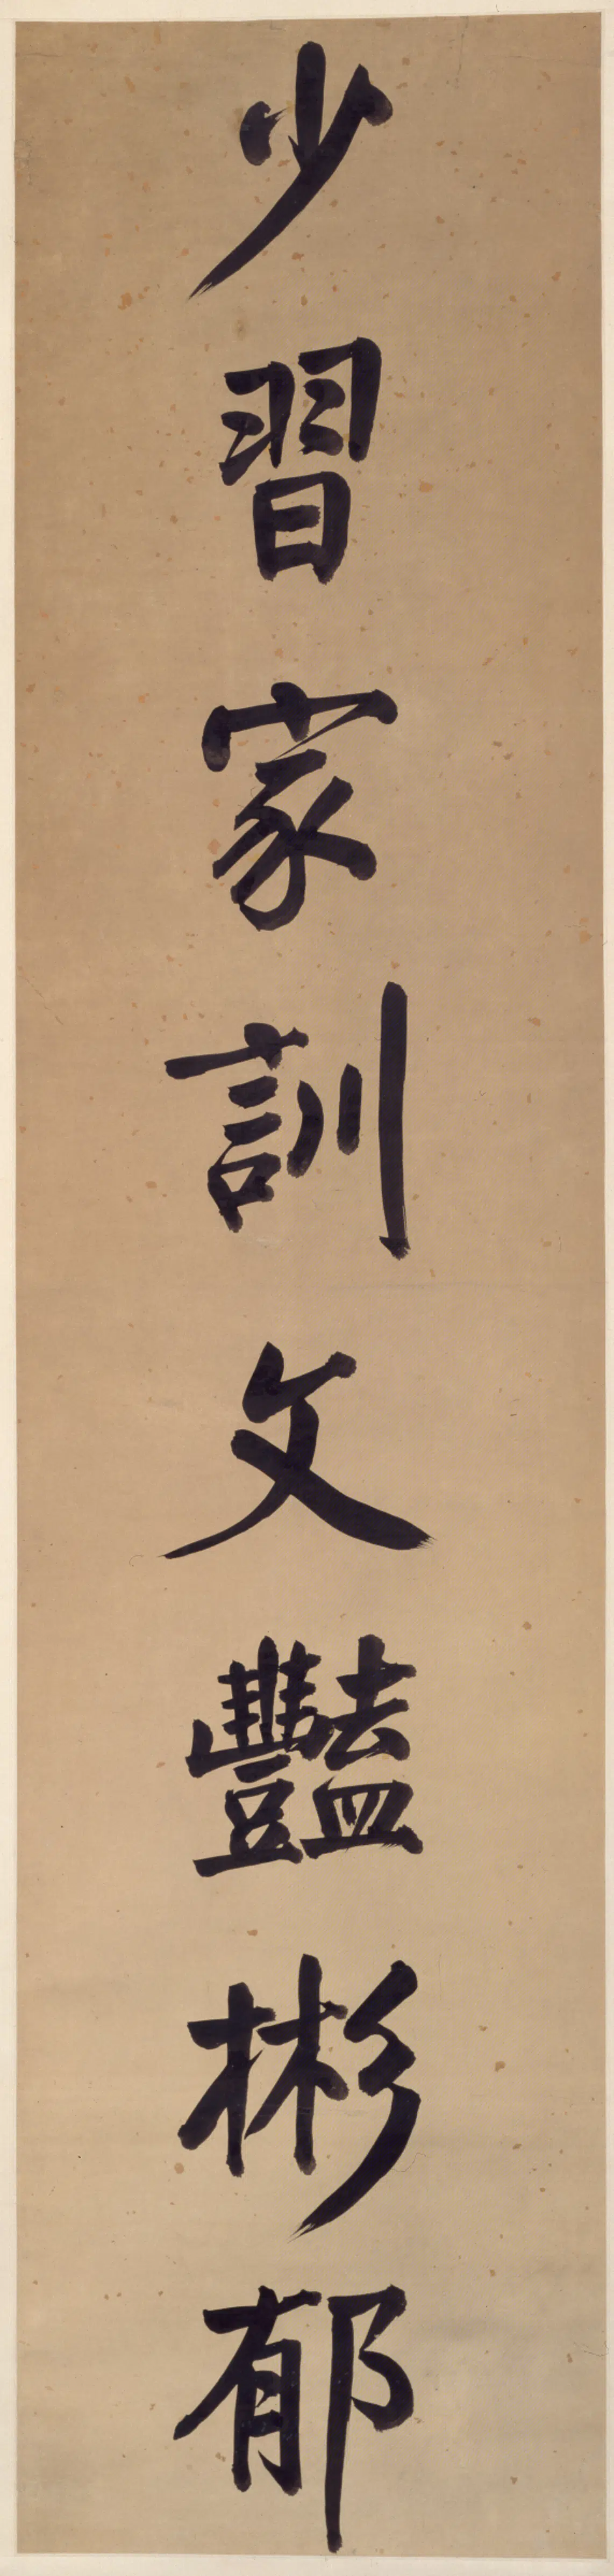 少習家訓文豔彬郁